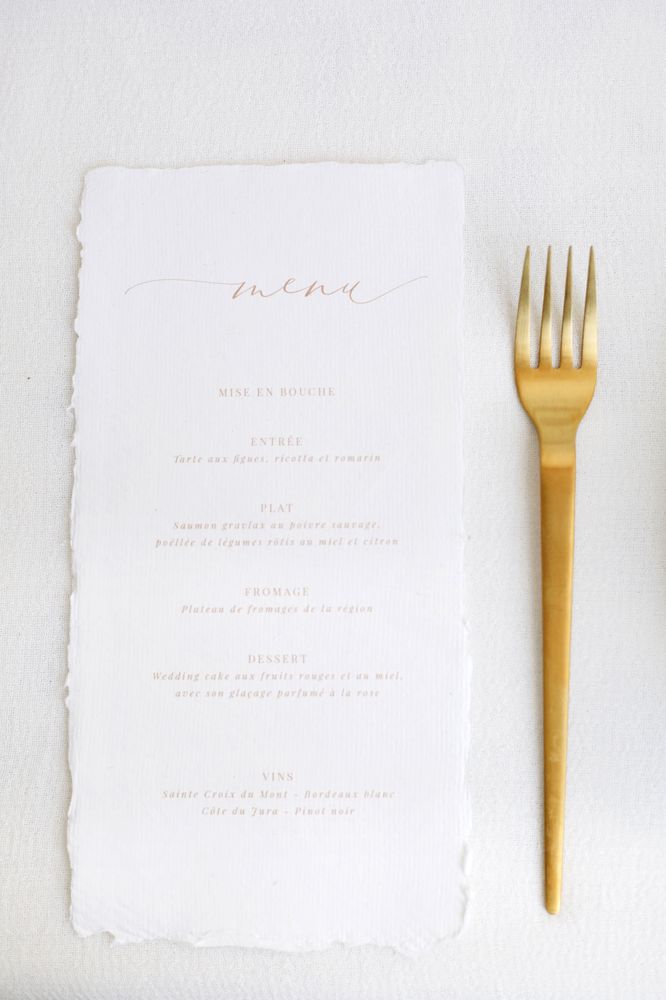 menu
MISE EN BOUCHE
ENTRÉE
Tarte aux figues, ricotta et romarin
PLAT
Saumon gravlax au poivre sauvage,
poëllée de légumes rôtis au miel et citron
FROMAGE
Plateau de fromages de la région
DESSERT
Wedding cake aux fruits rouges et au miel,
avec son glaçage parfumé à la rose
VINS
Sainte Croix du Mont - Bordeaux blanc
Côte du Jura - Pinot noir